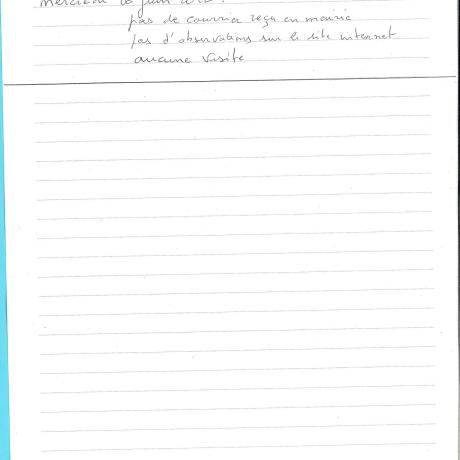 Mercredi juin
pas de courrier reçu en mairie
pas d'observations sur le site internet
aucune visite